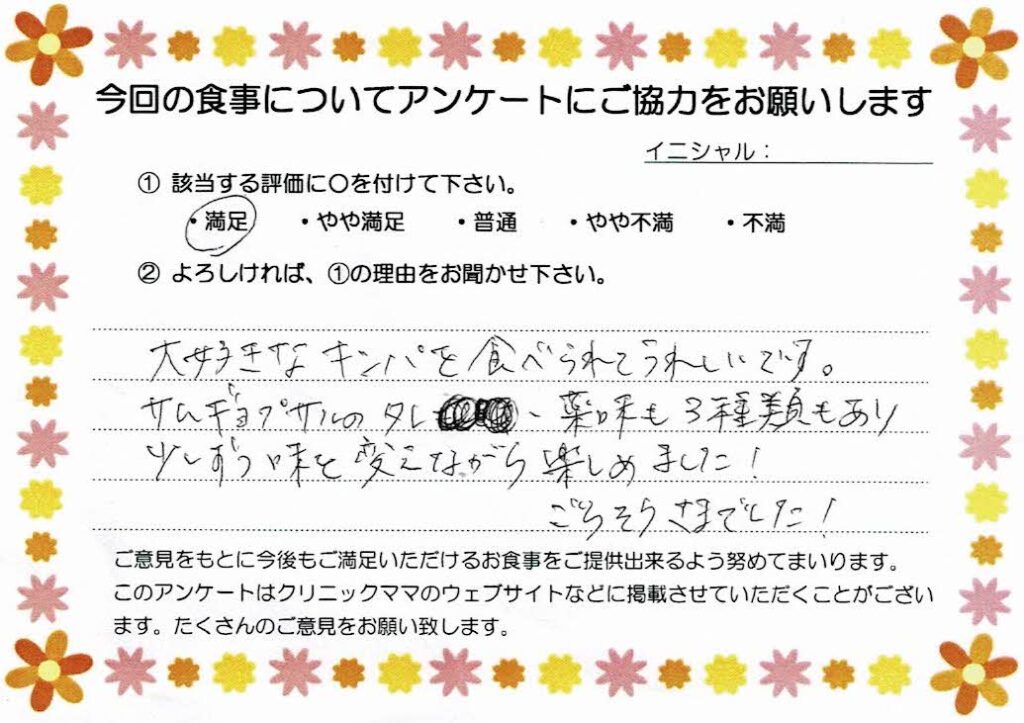 今回の食事についてアンケートにご協力をお願いします
イニシャル：
① 該当する評価に〇を付けて下さい。
・満足 ・やや満足 ・普通 ・やや不満 ・不満
② よろしければ、①の理由をお聞かせ下さい。
大好きなキンパを食べられてうれしいです。
サムギョプサルのタレ、薬味も3種類もあり
少しずつ味を変えながら楽しめました！
ごちそうさまでした！
ご意見をもとに今後もご満足いただけるお食事をご提供出来るよう努めてまいります。
このアンケートはクリニックママのウェブサイトなどに掲載させていただくことがござい
ます。たくさんのご意見をお願い致します。